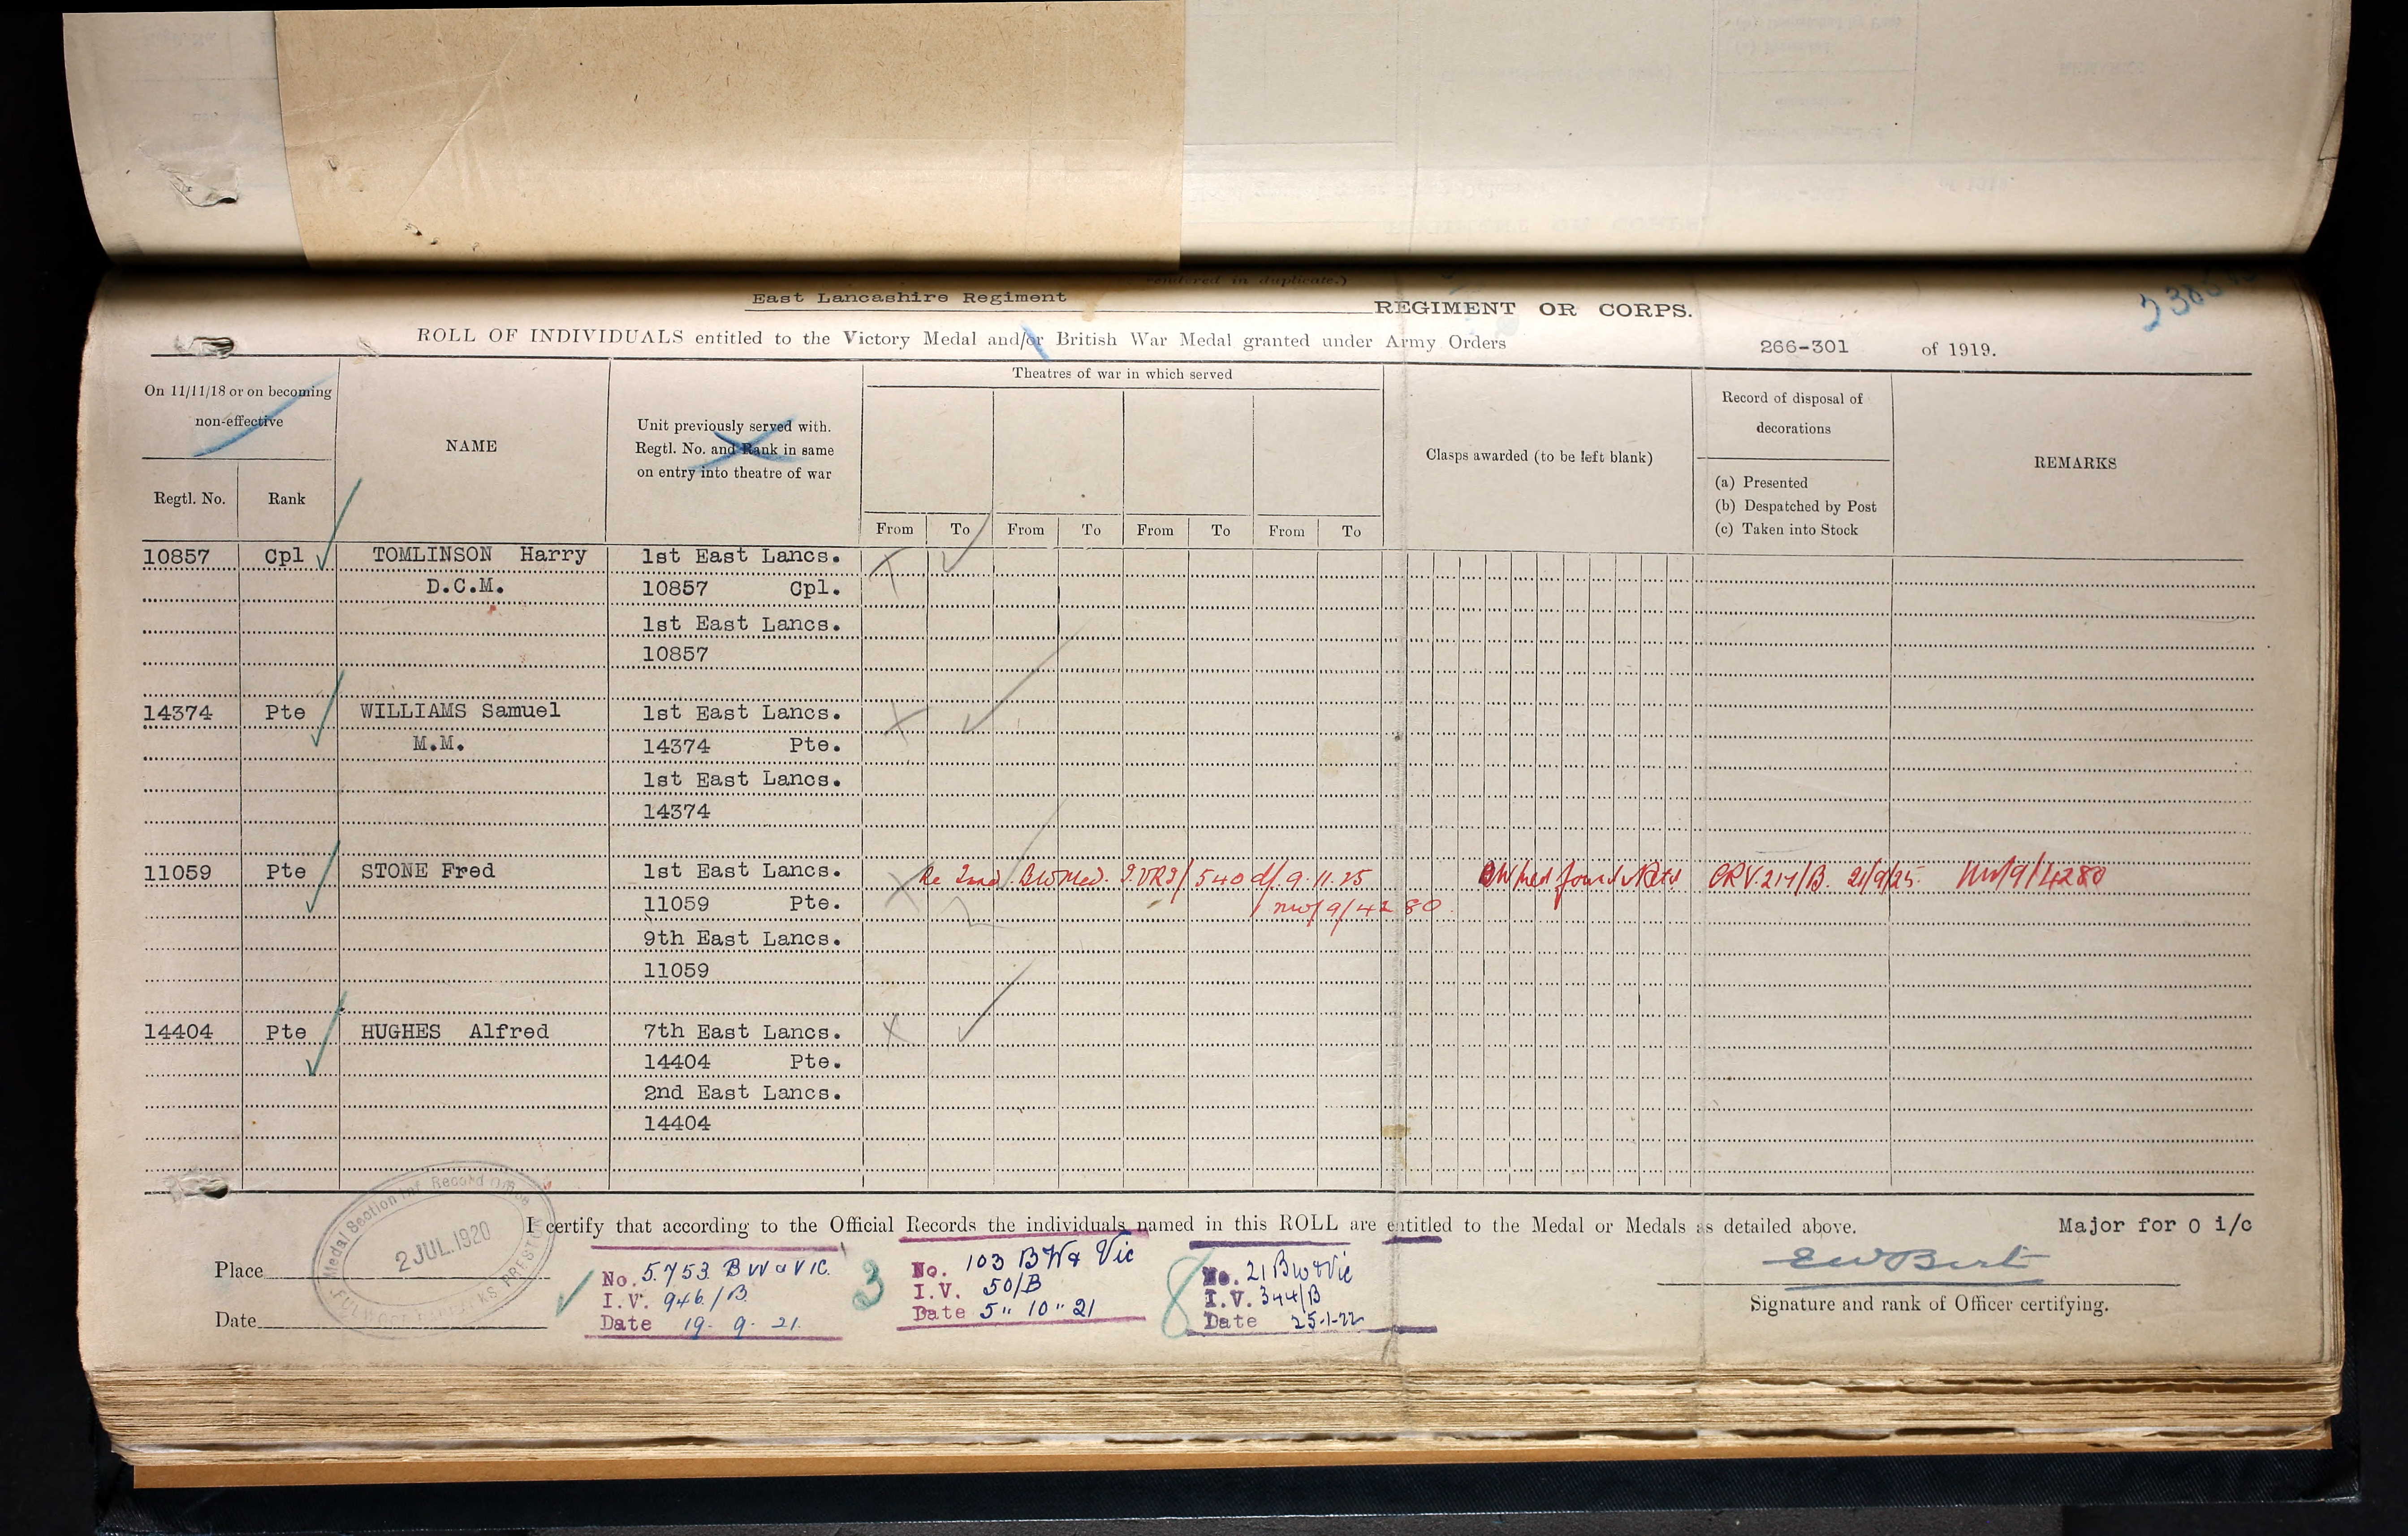 East Lancashire Regiment REGIMENT OR CORPS.
ROLL OF INDIVIDUALS entitled to the Victory Medal and/or British War Medal granted under Army Orders 266-301 of 1919.
On 11/11/18 or on becoming non-effective
Regtl. No. Rank
NAME
Unit previously served with. Regtl. No. and Rank in same on entry into theatre of war
Theatres of war in which served
From To From To From To From To
Clasps awarded (to be left blank)
Record of disposal of decorations
(a) Presented
(b) Despatched by Post
(c) Taken into Stock
REMARKS
10857 Cpl TOMLINSON Harry 1st East Lancs.
D.C.M. 10857 Cpl.
1st East Lancs.
10857
14374 Pte WILLIAMS Samuel 1st East Lancs.
M.M. 14374 Pte.
1st East Lancs.
14374
11059 Pte STONE Fred 1st East Lancs. Re 2nd BWMed. 540 d/. 9.11.25 21/9/25 9/4280
11059 Pte. 9/4280
9th East Lancs.
11059
14404 Pte HUGHES Alfred 7th East Lancs.
14404 Pte.
2nd East Lancs.
14404
I certify that according to the Official Records the individuals named in this ROLL are entitled to the Medal or Medals as detailed above. Major for O i/c
Medal Section Inf. Record Office
2 JUL. 1920
FULWOOD BARRACKS PRESTON
Place
Date
No. 5753 BW & VIC.
I.V. 946/B
Date 19. 9. 21.
3
No. 103 BW & Vic
I.V. 50/B
Date 5" 10" 21
8
No. 21 BW & Vic
I.V. 344/B
Date 25-1-22
Signature and rank of Officer certifying.